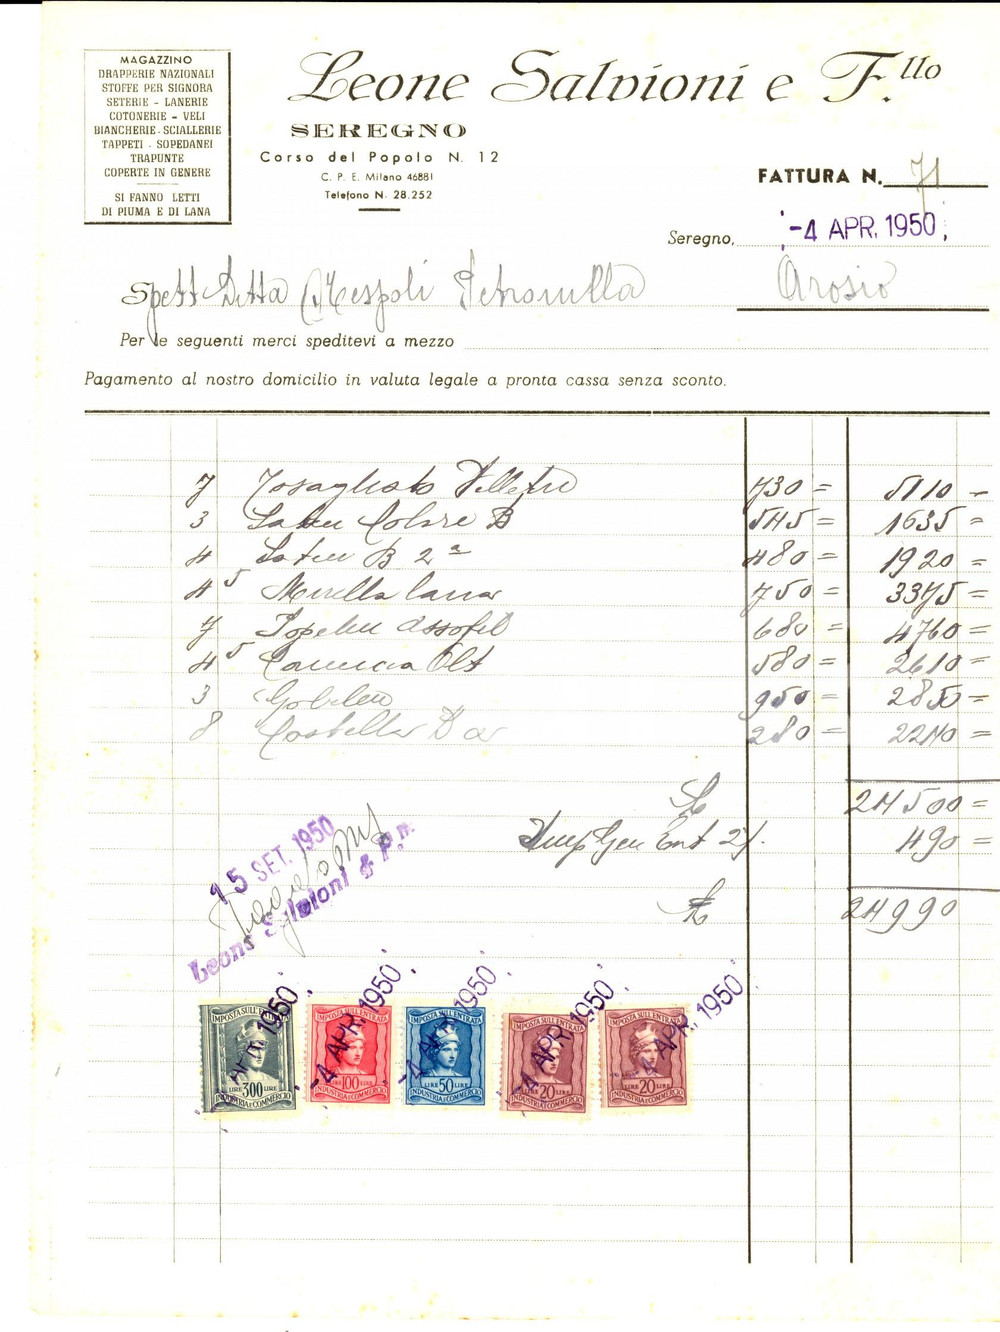 MAGAZZINO
DRAPPERIE NAZIONALI
STOFFE PER SIGNORA
SETERIE - LANERIE
COTONERIE - VELI
BIANCHERIE - SCIALLERIE
TAPPETI - SOPEDANEI
TRAPUNTE
COPERTE IN GENERE
SI FANNO LETTI
DI PIUMA E DI LANA
Leone Salvioni e F.llo
SEREGNO
Corso del Popolo N. 12
C. P. E. Milano 46881
Telefono N. 28.252
FATTURA N. 71
Seregno, -4 APR. 1950
Spett Ditta Nespoli Petronilla Arosio
Per le seguenti merci speditevi a mezzo
Pagamento al nostro domicilio in valuta legale a pronta cassa senza sconto.
7 730 = 5110 =
3 B 545 = 1635 =
4 B 2ª 480 = 1920 =
4 5 Mirella lana 750 = 3375 =
7 Popelin 680 = 4760 =
4 5 580 = 2610 =
3 Gobelin 950 = 2850 =
8 280 = 2240 =
£ 24500 =
Imp Gen Ent 2%. 490 =
£ 24990
15 SET. 1950
Leone Salvioni & F.
-4 APR. 1950
-4 APR. 1950
-4 APR. 1950
-4 APR. 1950
-4 APR. 1950
IMPOSTA SULL'ENTRATA
LIRE 300 LIRE
INDUSTRIA E COMMERCIO
IMPOSTA SULL'ENTRATA
LIRE 100 LIRE
INDUSTRIA E COMMERCIO
IMPOSTA SULL'ENTRATA
LIRE 50 LIRE
INDUSTRIA E COMMERCIO
IMPOSTA SULL'ENTRATA
LIRE 20 LIRE
INDUSTRIA E COMMERCIO
IMPOSTA SULL'ENTRATA
LIRE 20 LIRE
INDUSTRIA E COMMERCIO